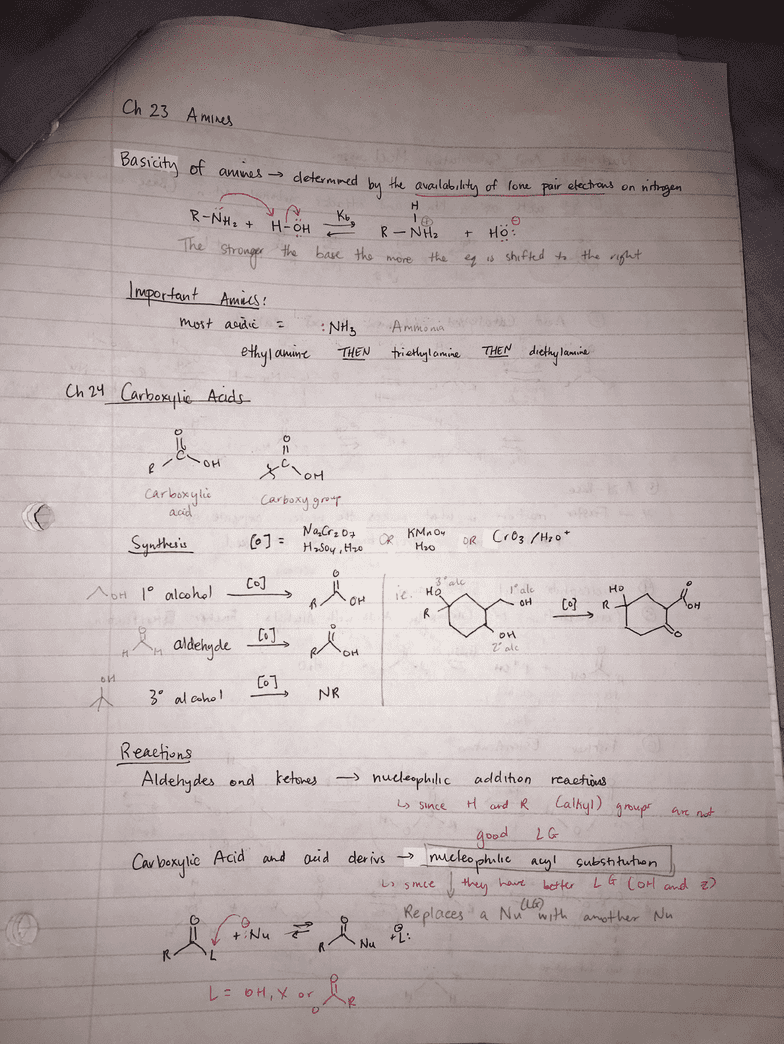 Ch 23 Amines
Basicity of amines → determined by the availability of lone pair electrons on nitrogen
R-NH₂ + H-OH ⇌ Kb R-NH₂ H ⊕ + HO: ⊖
The stronger the base the more the eq is shifted to the right
Important Amines:
most acidic = :NH₃ Ammonia
ethylamine THEN triethylamine THEN diethylamine
Ch 24 Carboxylic Acids
O O
R C OH C OH
Carboxylic acid Carboxy group
Synthesis [O] = Na₂Cr₂O₇ H₂SO₄, H₂O OR KMnO₄ H₂O OR CrO₃ / H₃O⁺
OH 1° alcohol [O] → O R OH ie. 3° alc HO R 1° alc OH OH 2° alc [O] → HO R O OH O
O H H aldehyde [O] → O R OH
OH 3° alcohol [O] → NR
Reactions
Aldehydes and ketones → nucleophilic addition reactions
↳ since H and R (alkyl) groups are not
good LG
Carboxylic Acid and acid derivs → nucleophilic acyl substitution
↳ since they have better LG (OH and z)
Replaces a Nu (LG) with another Nu
O R L + ⊖:Nu ⇌ O R Nu + ⊖L:
L = OH, X or O O R